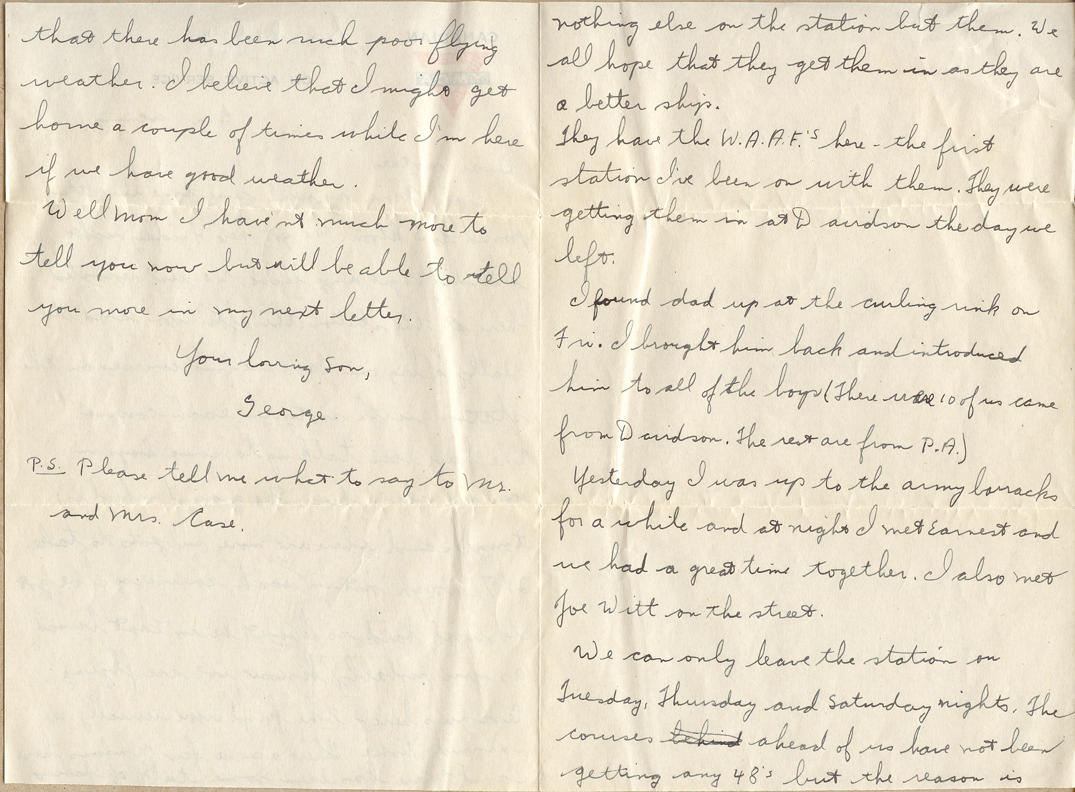 nothing else on the station but them. We
all hope that they get them in as they are
a better ship.
They have the W.A.A.F.'s here - the first
station I've been on with them. They were
getting them in at Davidson the day we
left.
I found dad up at the curling rink on
Fri. I brought him back and introduced
him to all of the boys (There were 10 of us came
from Davidson. The rest are from P.A.)
Yesterday I was up to the army barracks
for a while and at night I met Earnest and
we had a great time together. I also met
Joe Witt on the street.
We can only leave the station on
Tuesday, Thursday and Saturday nights. The
courses behind ahead of us have not been
getting any 48's but the reason is
that there has been such poor flying
weather. I believe that I might get
home a couple of times while I'm here
if we have good weather.
Well Mom I have'nt much more to
tell you now but will be able to tell
you more in my next letter.
Your loving Son,
George.
P.S. Please tell me what to say to Mr.
and Mrs. Case.